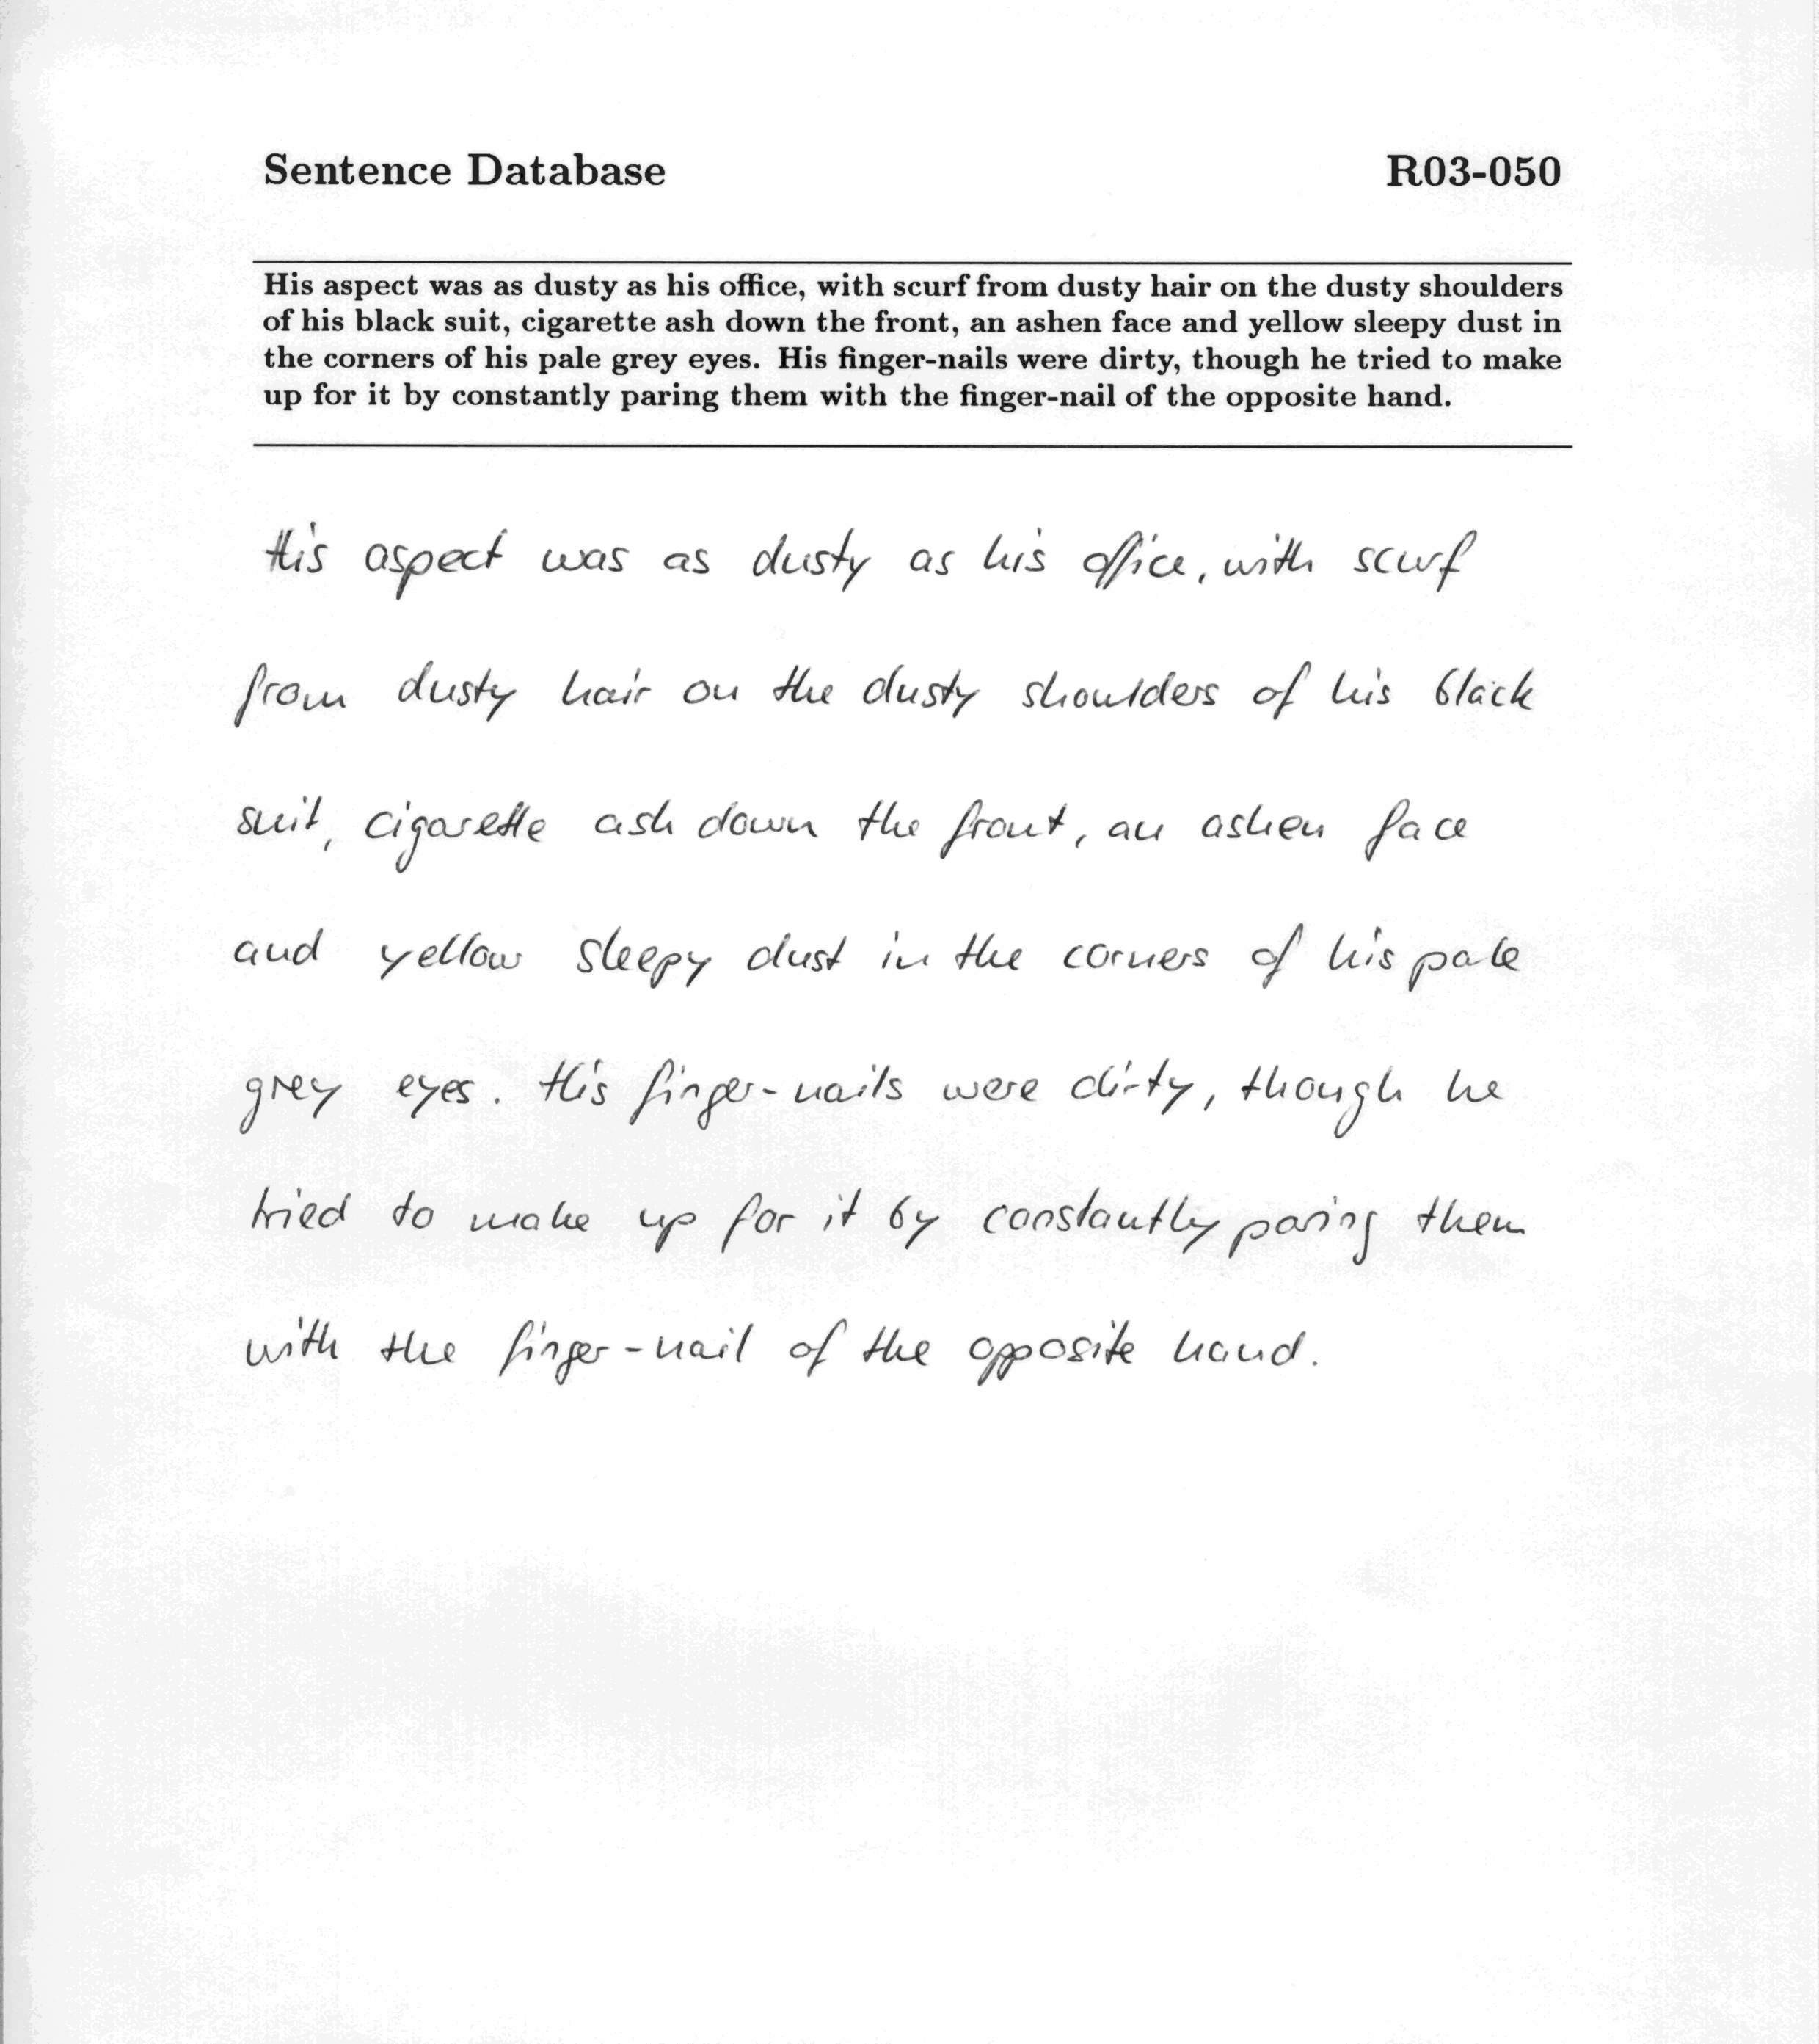 Sentence Database R03-050
His aspect was as dusty as his office, with scurf from dusty hair on the dusty shoulders
of his black suit, cigarette ash down the front, an ashen face and yellow sleepy dust in
the corners of his pale grey eyes. His finger-nails were dirty, though he tried to make
up for it by constantly paring them with the finger-nail of the opposite hand.
His aspect was as dusty as his office, with scurf
from dusty hair on the dusty shoulders of his black
suit, cigarette ash down the front, an ashen face
and yellow sleepy dust in the corners of his pale
grey eyes. His finger-nails were dirty, though he
tried to make up for it by constantly paring them
with the finger-nail of the opposite hand.